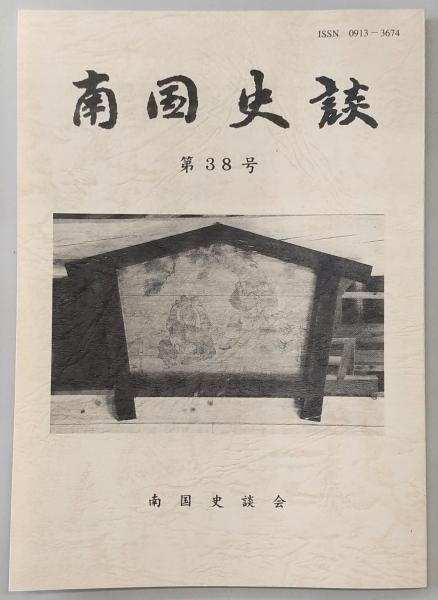 ISSN 0913-3674
南国史談
第38号
南国史談会